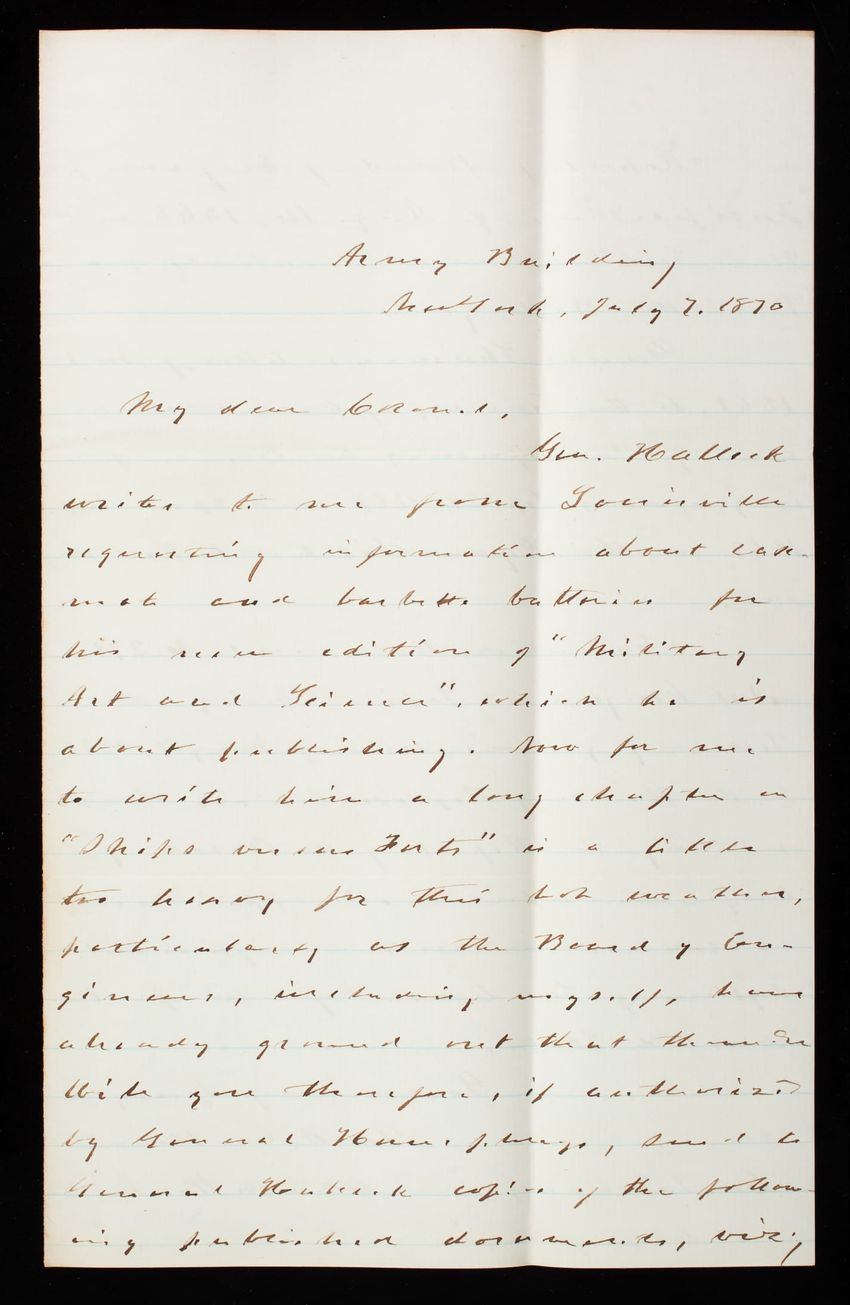 Army Building
New York, July 7. 1870
My dear Colonel,
Gen. Halleck
writes to me from Louisville
requesting information about case-
mate and barbette batteries for
his new edition of "Military
Art and Science", which he is
about publishing. Now for me
to write him a long chapter on
"Ships versus Forts" is a little
too heavy for this hot weather,
particularly as the Board of En-
gineers, including myself, have
already ground out that thunder
Will you therefore, if authorized
by General Humphreys, send to
General Halleck copies of the follow-
ing published documents, viz;